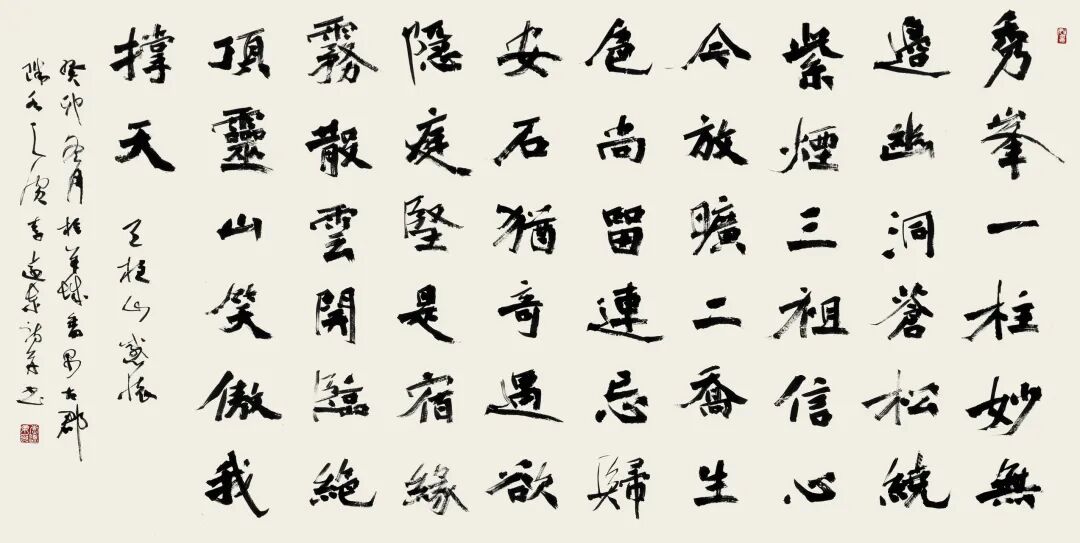 秀峯一柱妙無
邊幽洞蒼松繞
紫煙三祖信心
今放曠二喬生
色尚留連忘歸
安石猶奇遇欲
隱庭堅是宿緣
霧散雲開臨絕
頂靈山笑傲我
撑天 天柱山感懷
癸卯月於羊城番禺古郡
珠水之濱李遠東詩并書